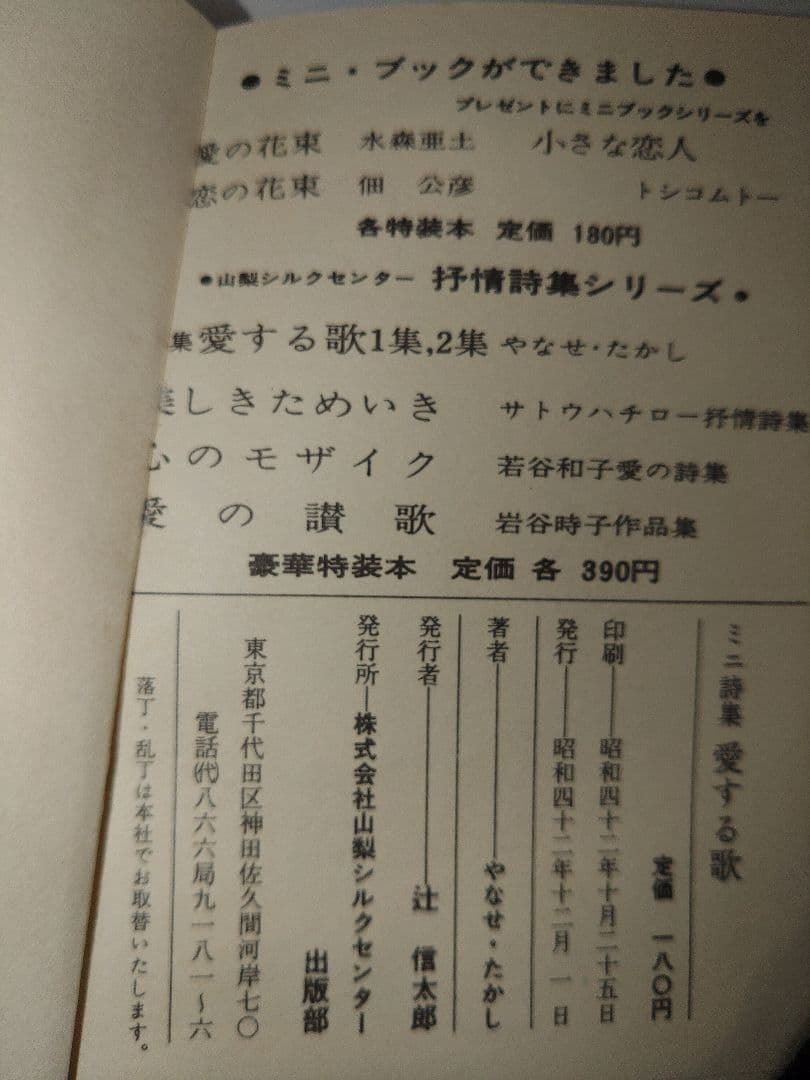 ●ミニ・ブックができました●
プレゼントにミニブックシリーズを
愛の花束 水森亜土 小さな恋人
恋の花束 佃 公彦 トシコムトー
各特装本 定価 180円
●山梨シルクセンター 抒情詩集シリーズ●
集 愛する歌1集,2集 やなせ・たかし
美しきためいき サトウハチロー抒情詩集
心のモザイク 若谷和子愛の詩集
愛の讃歌 岩谷時子作品集
豪華特装本 定価 各 390円
ミニ詩集 愛する歌
定価 一八〇円
印刷――昭和四十二年十月二十五日
発行――昭和四十二年十二月 一 日
著者――やなせ・たかし
発行者――辻 信太郎
発行所―株式会社山梨シルクセンター
出版部
東京都千代田区神田佐久間河岸七〇
電話(代)八六六局九一八一〜六
落丁・乱丁は本社でお取替いたします。